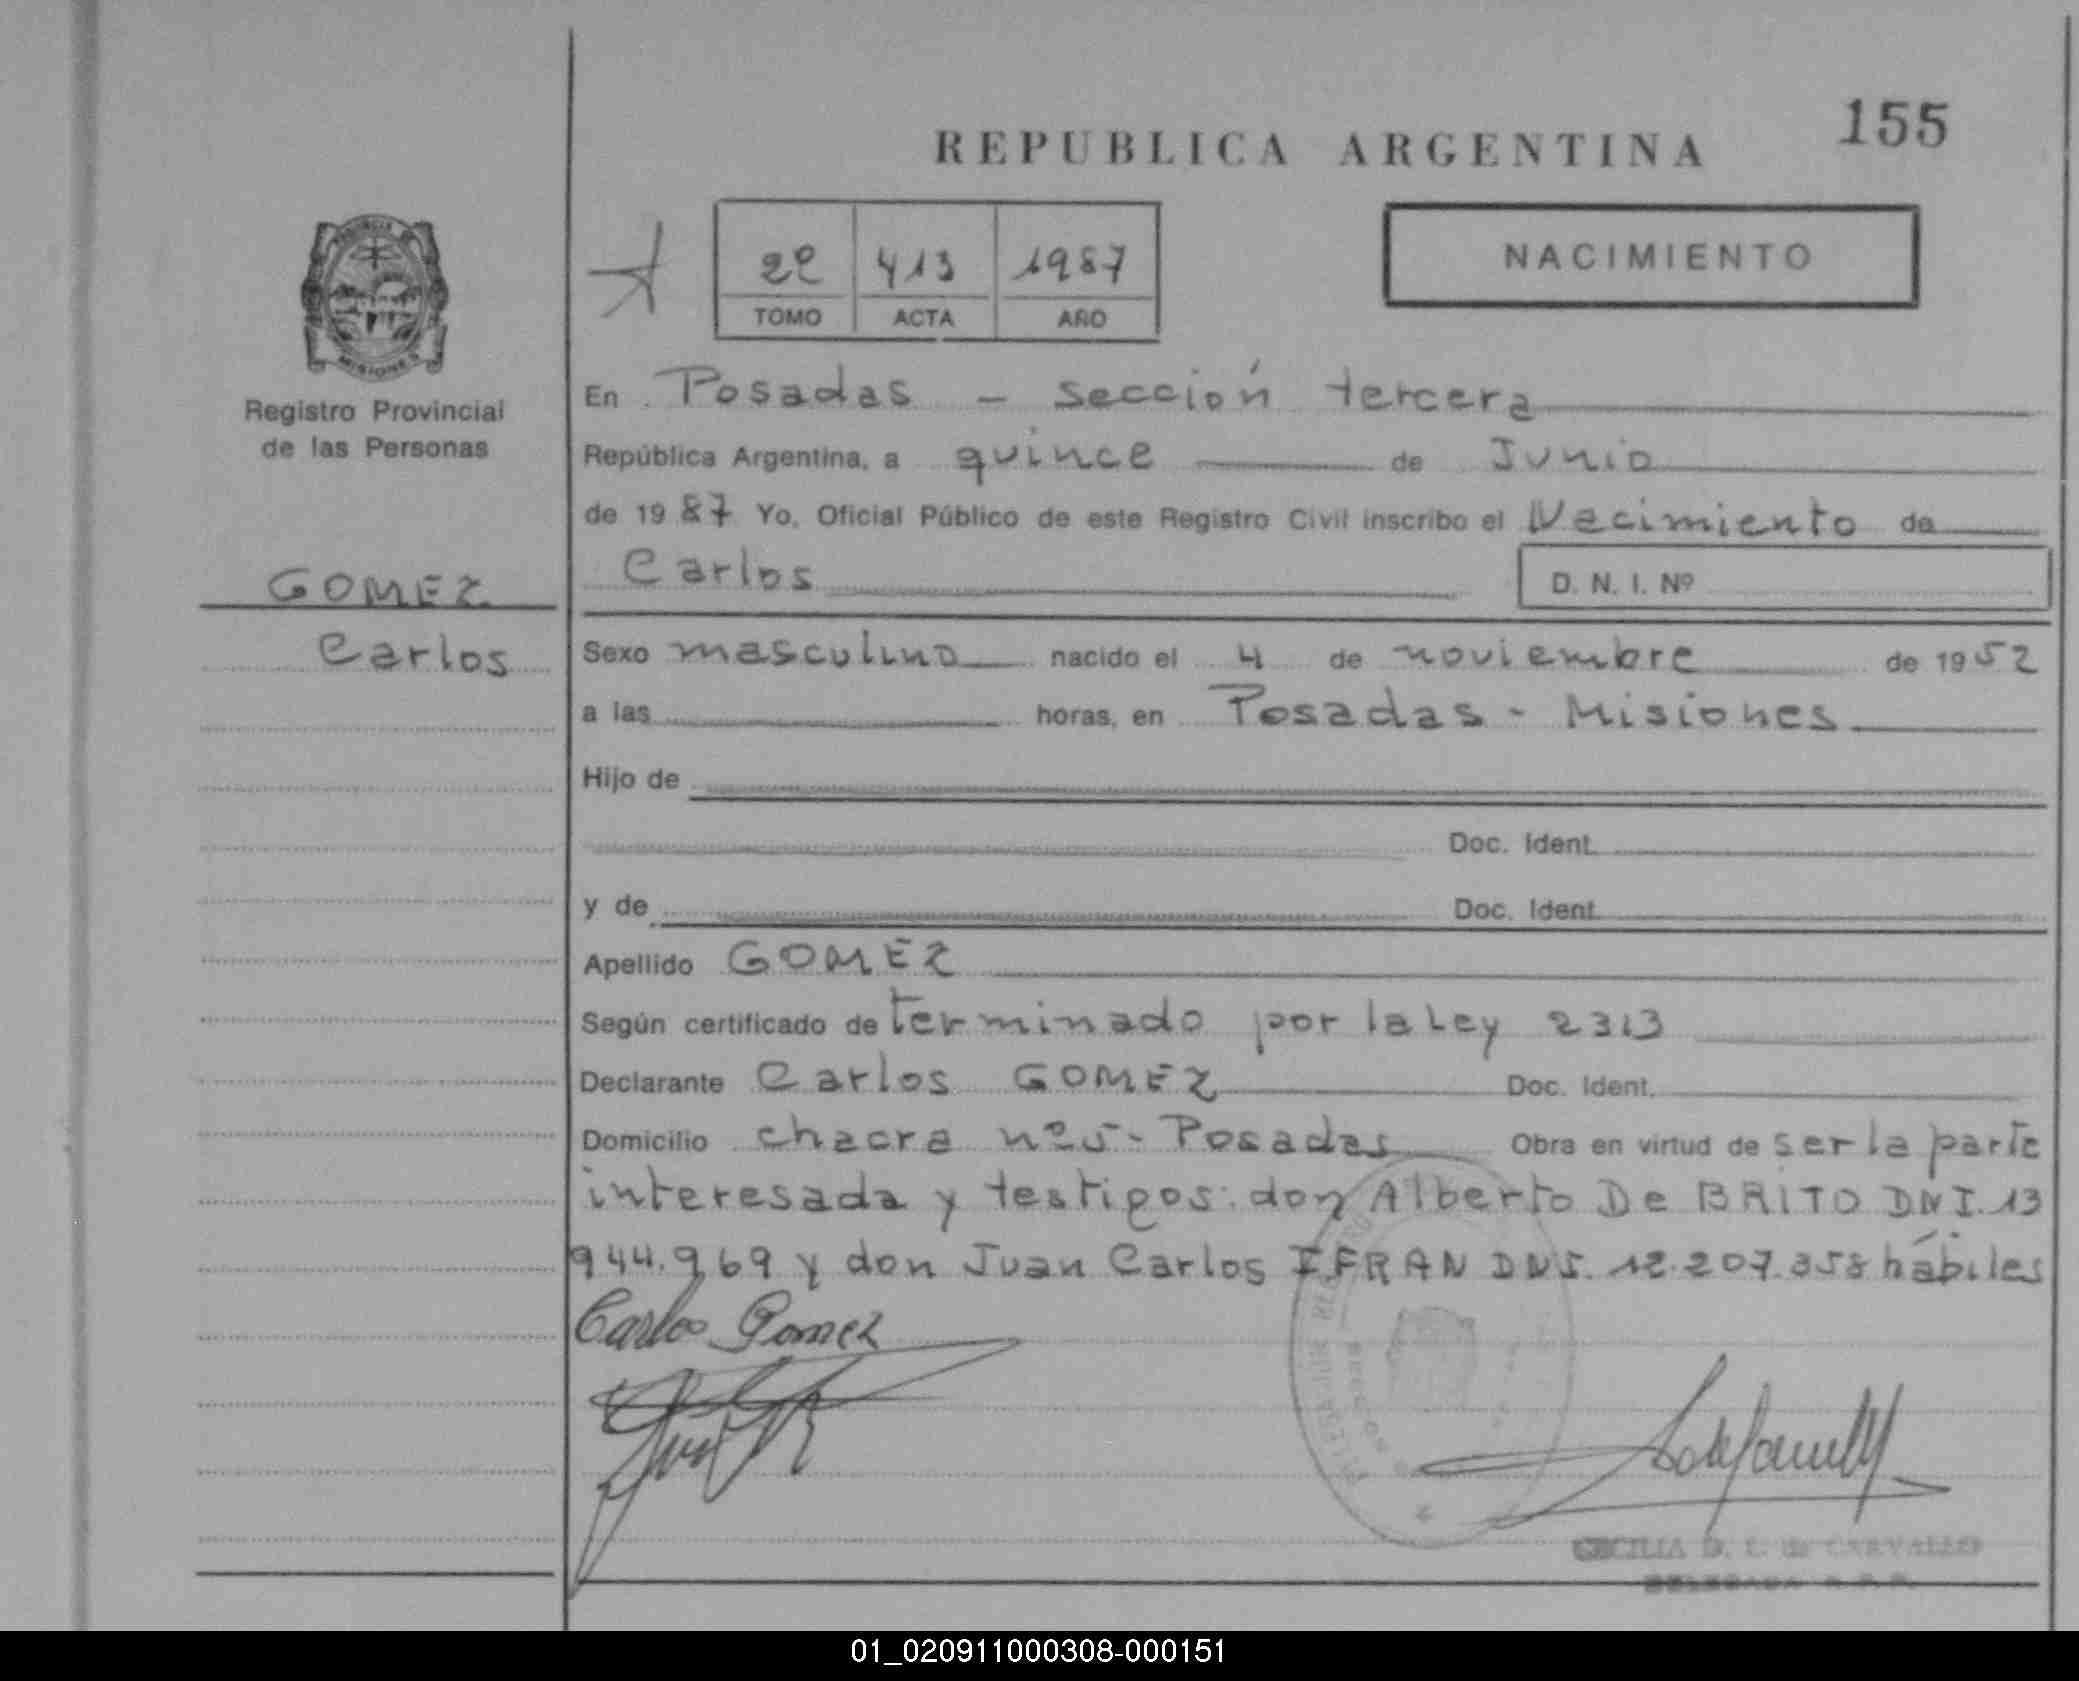 155
REPUBLICA ARGENTINA
NACIMIENTO
2º 413 1987
TOMO ACTA AÑO
PROVINCIA DE
MISIONES
Registro Provincial
de las Personas
GOMEZ
Carlos
En Posadas - sección tercera
República Argentina, a quince de Junio
de 1987 Yo, Oficial Público de este Registro Civil inscribo el Nacimiento de
Carlos D. N. I. Nº
Sexo masculino nacido el 4 de noviembre de 1952
a las horas, en Posadas - Misiones
Hijo de
Doc. Ident.
y de Doc. Ident.
Apellido GOMEZ
Según certificado determinado por la Ley 2313
Declarante Carlos GOMEZ Doc. Ident.
Domicilio chacra nº5- Posadas Obra en virtud de ser la parte
interesada y testigos: don Alberto De BRITO DNI. 13
944.969 y don Juan Carlos IFRAN DNI. 12.207.358 hábiles
Carlos Gomez
CECILIA D. L. de CARVALLO
DELEGADA R.P.P.
01_020911000308-000151